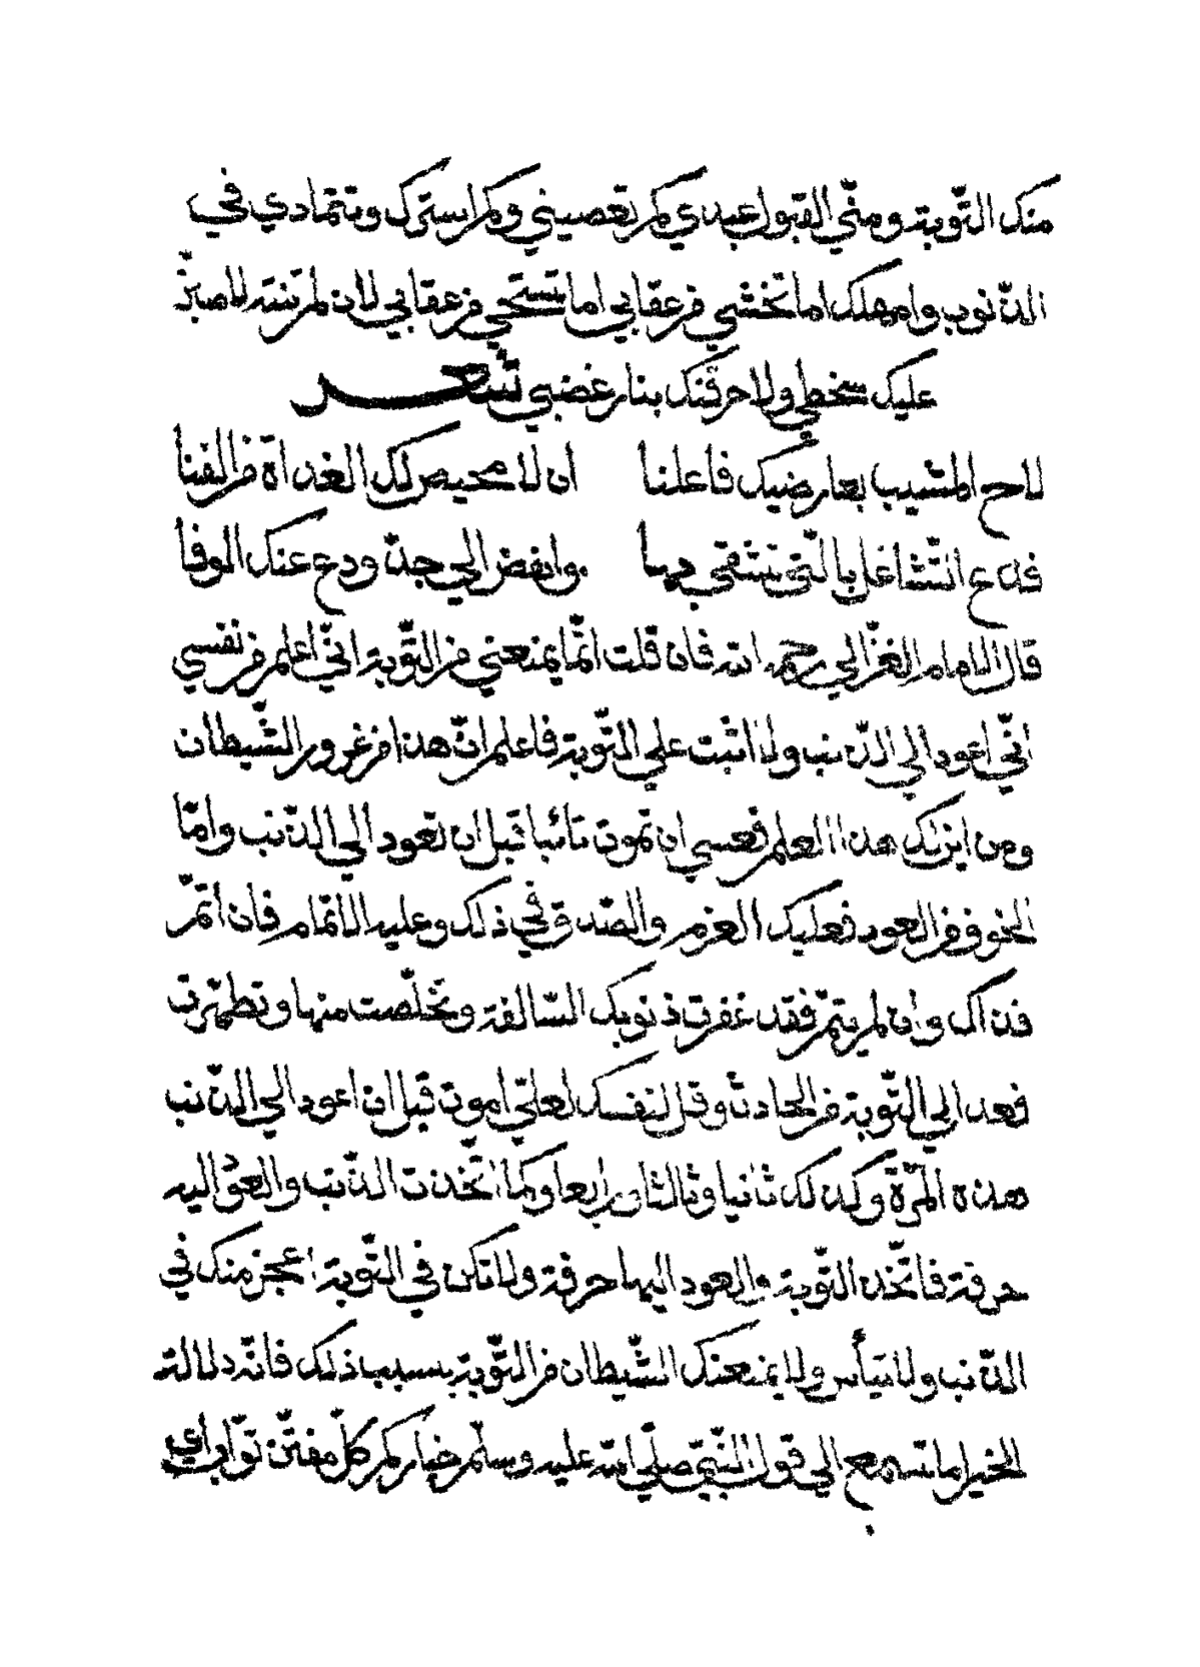 منك التّوبة ومنّي القبول عبدي كم تعصيني وكم استرك وتتمادي في
الذّنوب وامهلك اما تخشي من عقابي اما تستحي من عقابي لان لم تنته لاصبّنّ
عليك سخطي ولاحرقنك بنار غضبي شعر
لاح المشيب بعارضيك فاعلنا ان لا محيص لك الغداة من الفنا
فدع التّشاغل بالّتي تشقي بها وانهض الي جدّ ودع عنك الموفا
قال الامام الغزّالي رحمه الله فان قلت انّما يمنعني من التّوبة انّي اعلم من نفسي
انّي اعود الي الذّنب ولا اثبت علي التّوبة فاعلم انّ هذا من غرور الشّيطان
ومن اين لك هذا العلم فعسي ان تموت تائبا قبل ان تعود الي الذّنب وامّا
الخوف من العود فعليك العزم والصّدق في ذلك وعليه الاتمام فان اتمّ
فذاك وان لم يتمّ فقد غفرت ذنوبك السّالفة وتخلّصت منها وتطهّرت
فعد الي التّوبة من الحادث وقل لنفسك لعلّي اموت قبل ان اعود الي الذّنب
هذه المرّة وكذلك ثانيا وثالثا ورابعا وكما اتّخذت الذّنب والعود اليه
حرفة فاتّخذ التّوبة والعود اليها حرفة ولا تكن في التّوبة اعجز منك في
الذّنب ولا تيأس ولا يمنعنك الشّيطان من التّوبة بسبب ذلك فانّه دلالة
الخير اما تسمع الي قول النّبيّ صلّي الله عليه وسلّم خياركم كلّ مفتّن توّاب اي